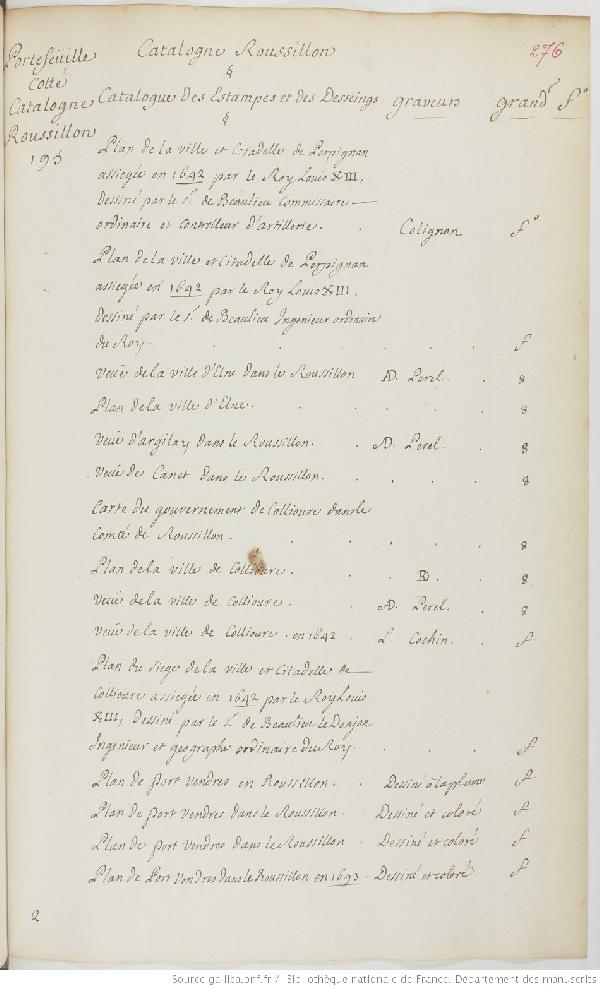 Catalogne Roussillon
276
Portefeuille
Cotté
Catalogne
Roussillon
195
§
Catalogue des Estampes et des Desseings graveurs grand f°
§
Plan de la ville et Citadelle de Perpignan
assiegée en 1642 par le Roy Louis XIII,
Dessiné par le Sr. de Beaulieu Commissaire
ordinaire et Controlleur d'artillerie. . Colignon . f°
Plan de la ville et Citadelle de Perpignan
assiegée en 1642 par le Roy Louis XIII,
Dessiné par le Sr. de Beaulieu Ingenieur ordinaire
du Roy. . . . . . f
Veüe de la ville d'Elne dans le Roussillon AD. Perel. . 8
Plan de la ville d'Elne. . . . . 8
Veüe d'argilay dans le Roussillon. . AD. Perel. . 8
Veüe de Canet dans le Roussillon. . . . . 8
Carte du gouvernement de Collioure dans le
Comté de Roussillon. . . . . 8
Plan de la ville de Collioure. . . 8
Veüe de la ville de Collioure. . AD. Perel. . 8
Veüe de la ville de Collioure. en 1642 . L. Cochin. . f
Plan du siege de la ville et Citadelle de
Collioure assiegée en 1642 par le Roy Louis
XIII, Dessiné par le Sr. de Beaulieu le Donjon
Ingenieur et geographe ordinaire du Roy. . . . f
Plan de port vendres en Roussillon. . Dessiné à la plume f
Plan de port vendres dans le Roussillon. . Dessiné et coloré f
Plan de port vendres dans le Roussillon . Dessiné et coloré f
Plan de Port vendres dans le Roussillon en 1693 . Dessiné et coloré f
2
Source gallica.bnf.fr / Bibliothèque nationale de France. Département des manuscrits